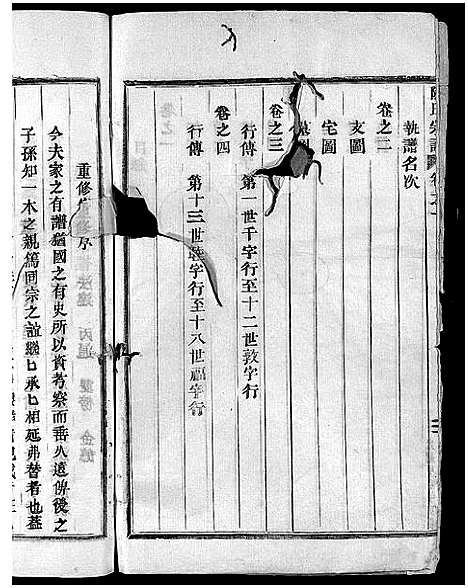 陳氏宗譜
執譜名次
卷之二
支圖
宅圖
墓圖
卷之三
行傳 第一世千字行至十二世敦字行
卷之四
行傳 第十三世睦字行至十八世福字行
重修
序
今夫家之有譜猶國之有史所以資考察而垂久遠俾後之
子孫知一木之親篤同宗之誼繼匕承匕相延弗替者也葢